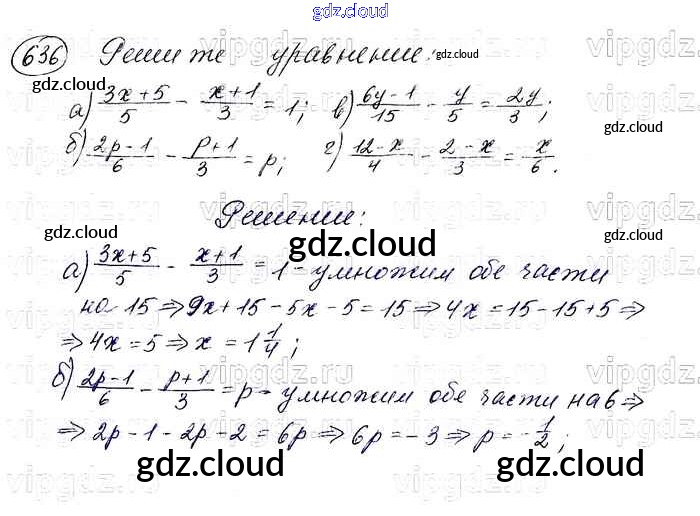 gdz.cloud
636 Решите уравнение: gdz.cloud
gdz.cloud
а) (3x+5)/5 - (x+1)/3 = 1; в) (6y-1)/15 - y/5 = 2y/3;
gdz.cloud
б) (2p-1)/6 - (p+1)/3 = p; г) (12-x)/4 - (2-x)/3 = x/6.
Решение:
gdz.cloud
gdz.cloud
gdz.cloud
а) (3x+5)/5 - (x+1)/3 = 1 - умножим обе части
на 15 ⇒ 9x+15-5x-5=15 ⇒ 4x=15-15+5 ⇒
⇒ 4x=5 ⇒ x=1 1/4;
gdz.cloud
б) (2p-1)/6 - (p+1)/3 = p - умножим обе части на 6 ⇒
⇒ 2p-1-2p-2=6p ⇒ 6p=-3 ⇒ p=-1/2;
gdz.cloud
gdz.cloud
vipgdz